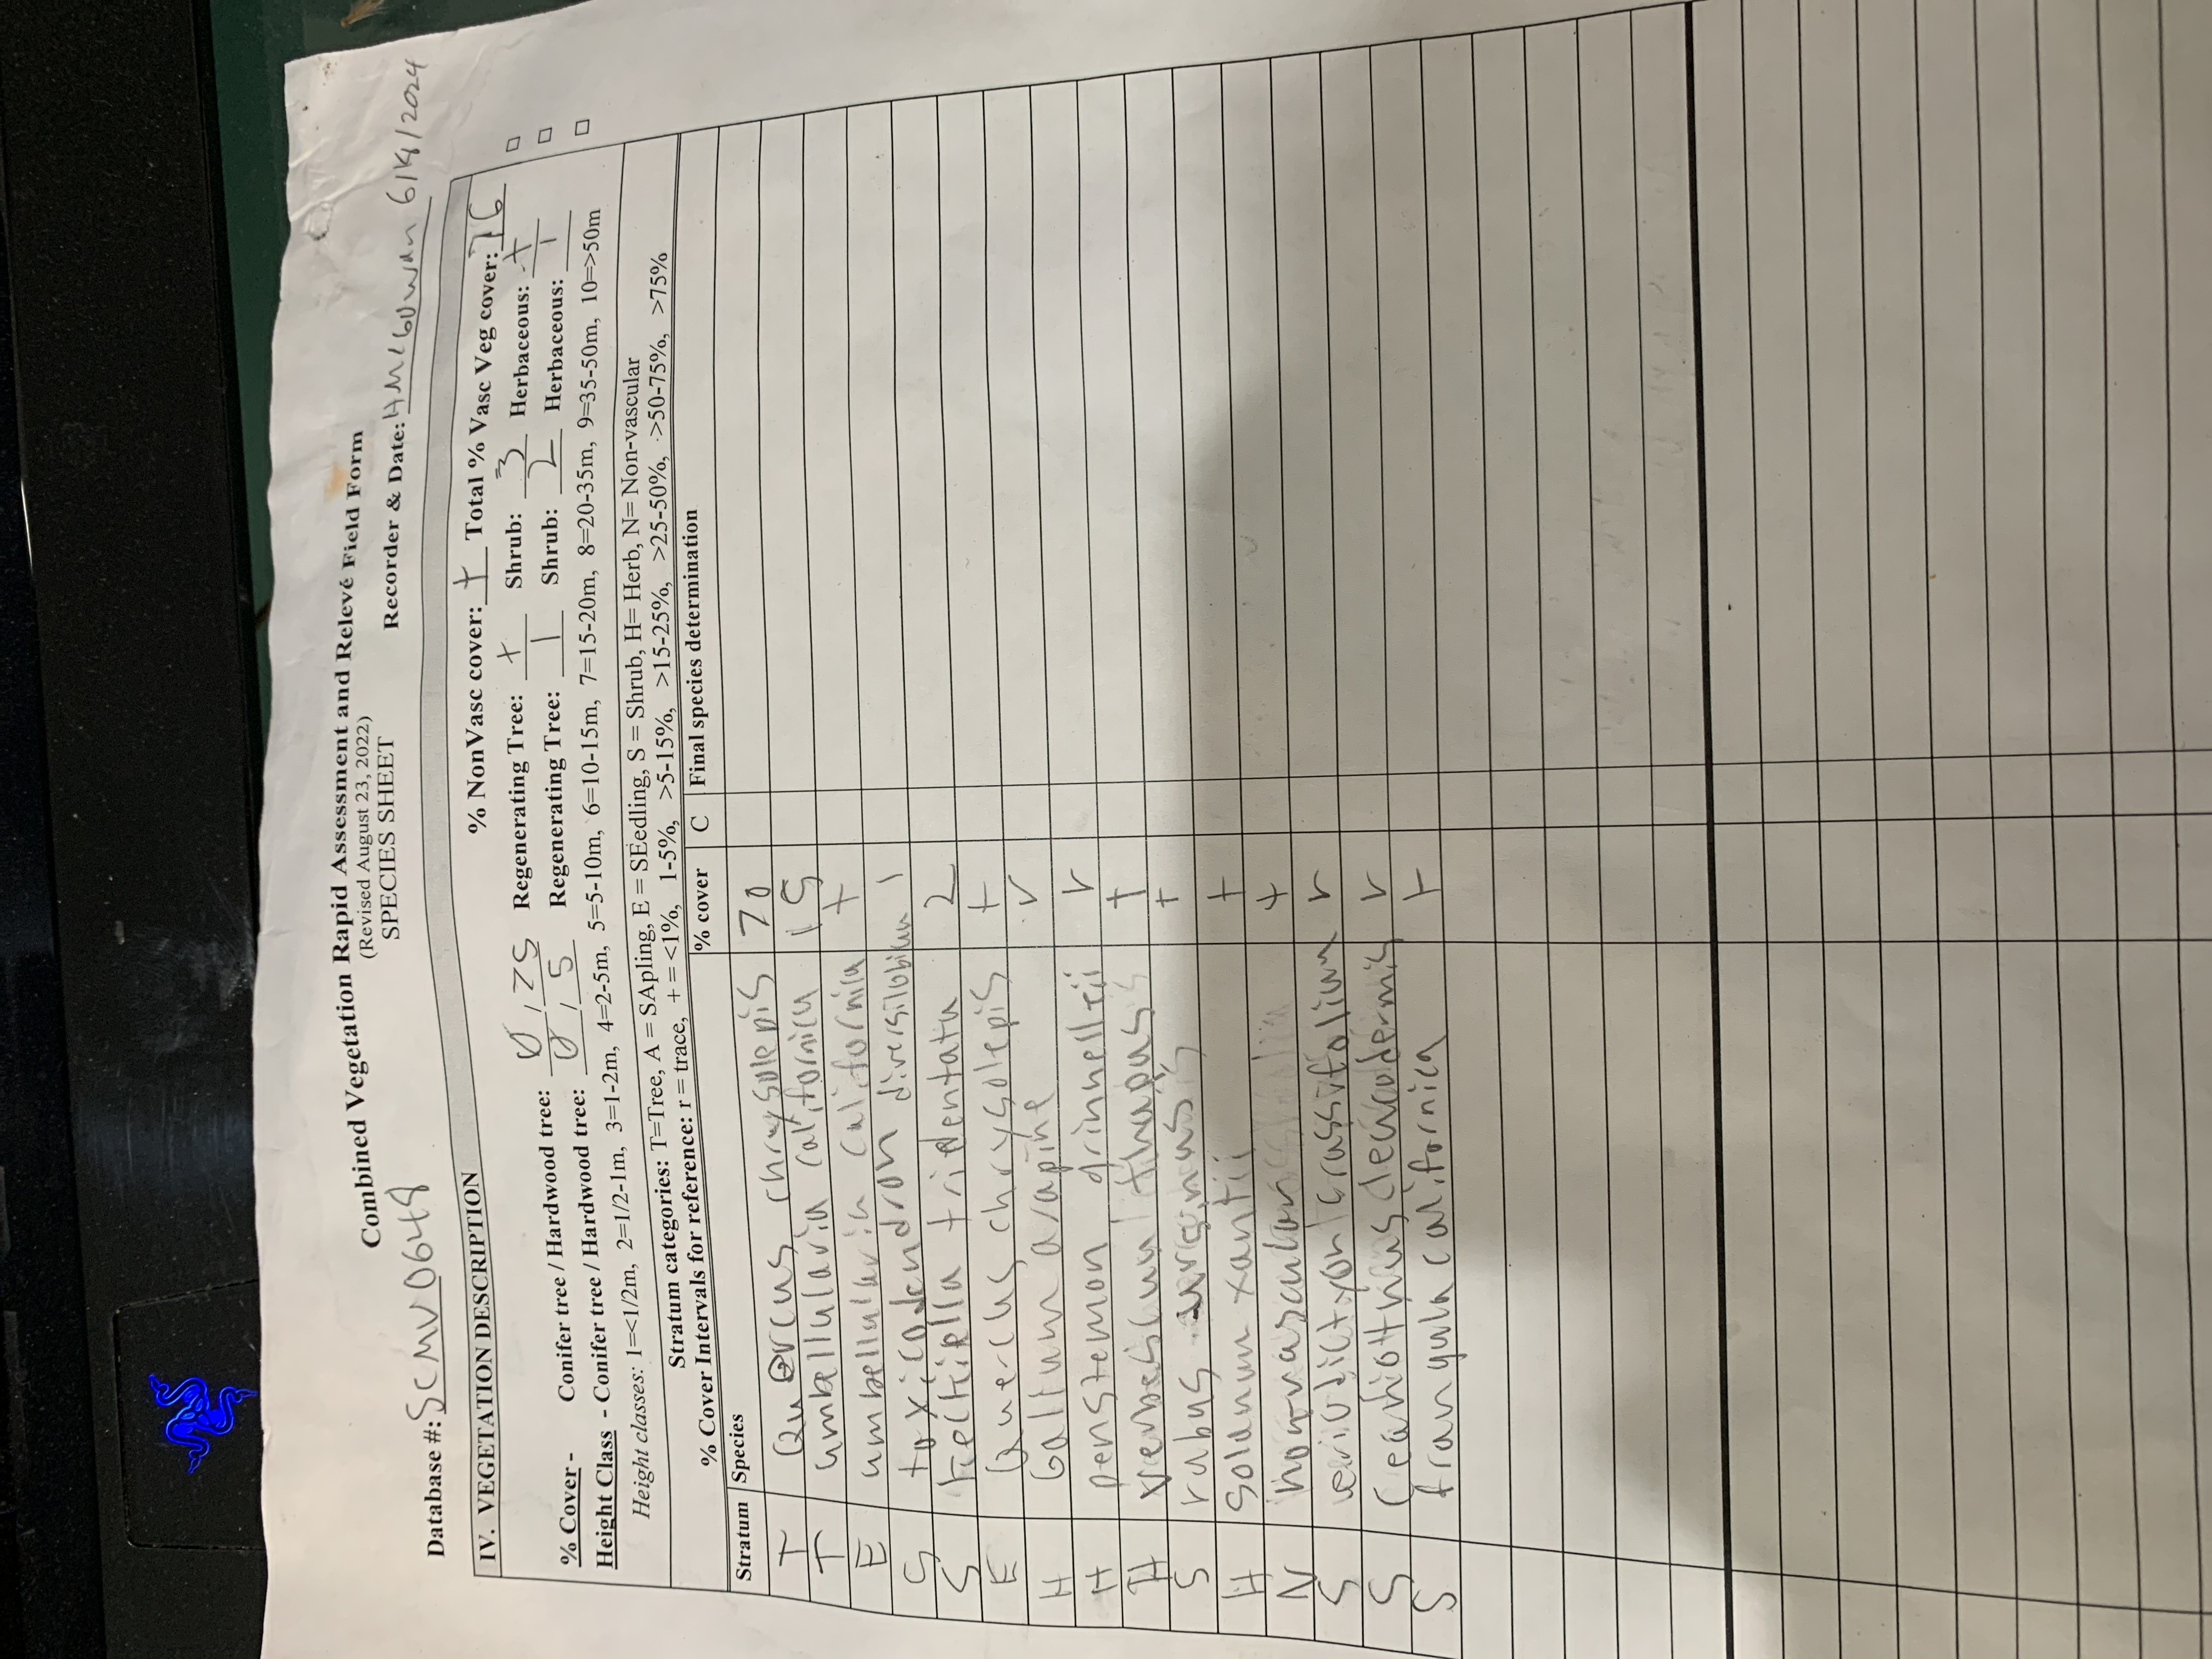 Combined Vegetation Rapid Assessment and Relevé Field Form
(Revised August 23, 2022)
SPECIES SHEET
Database #: SCMV0649 Recorder & Date: 6/19/2024
IV. VEGETATION DESCRIPTION
% NonVasc cover: + Total % Vasc Veg cover: 76
% Cover - Conifer tree / Hardwood tree: 0/75 Regenerating Tree: + Shrub: 3 Herbaceous: +
Height Class - Conifer tree / Hardwood tree: 0/5 Regenerating Tree: 1 Shrub: 2 Herbaceous: 1
Height classes: 1=<1/2m, 2=1/2-1m, 3=1-2m, 4=2-5m, 5=5-10m, 6=10-15m, 7=15-20m, 8=20-35m, 9=35-50m, 10=>50m
Stratum categories: T=Tree, A = SApling, E = SEedling, S = Shrub, H= Herb, N= Non-vascular
% Cover Intervals for reference: r = trace, + = <1%, 1-5%, >5-15%, >15-25%, >25-50%, >50-75%, >75%
Stratum Species % cover C Final species determination
T Quercus chrysolepis 70
T umbellularia californica 15
E umbellularia californica +
S toxicodendron diversilobum 1
S tridentata 2
E Quercus chrysolepis +
H Galium aparine r
H penstemon grinnellii r
H verbascum thapsus +
S rubus ursinus +
H Solanum xantii +
N nonvascular +
S eriodictyon crassifolium r
S Ceanothus leucodermis r
S frangula californica +